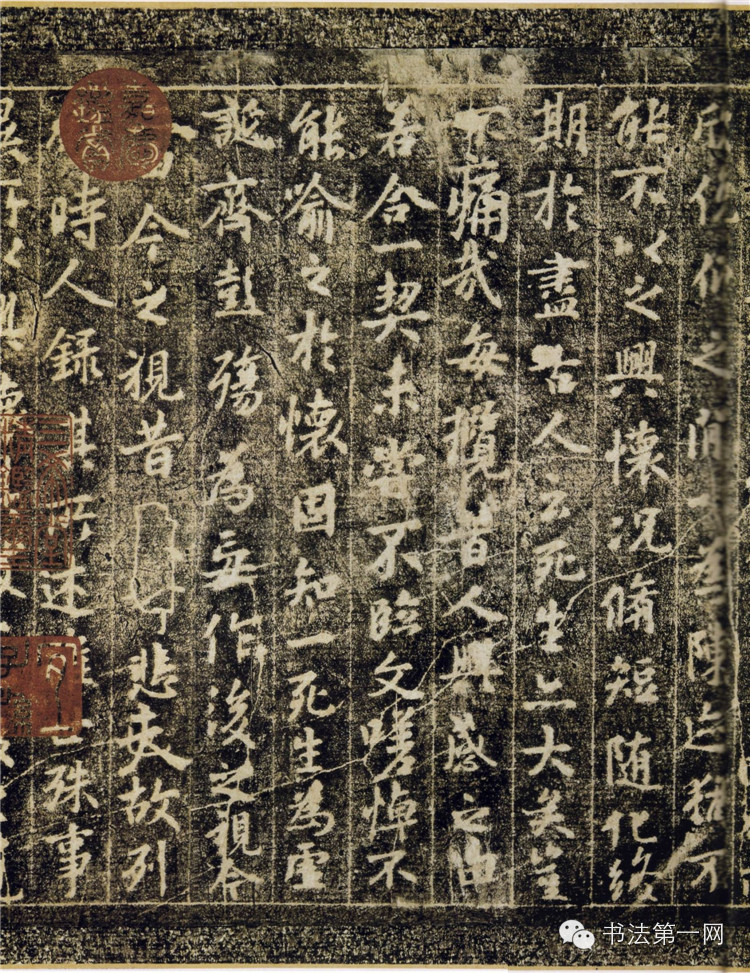 欣俛仰之閒以為陳迹猶不
能不以之興懷況脩短隨化終
期於盡古人云死生亦大矣豈
不痛哉每攬昔人興感之由
若合一契未嘗不臨文嗟悼不
能喻之於懷固知一死生為虛
誕齊彭殤為妄作後之視今
由今之視昔悲夫故列
時人錄其所述雖世殊事
異所以興懷
书法第一网